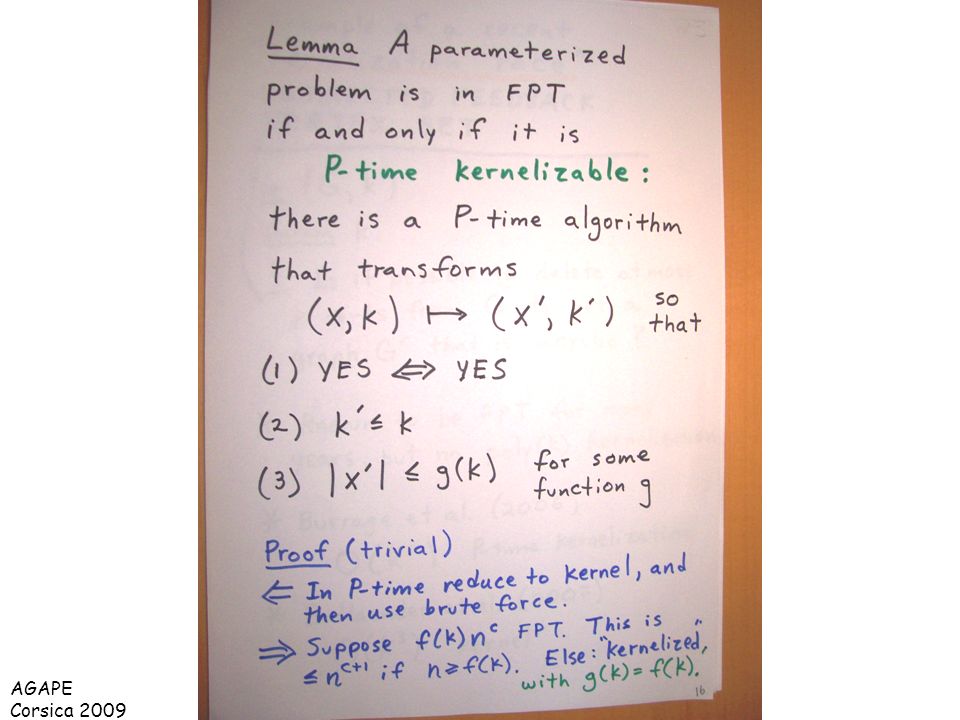 Lemma A parameterized
problem is in FPT
if and only if it is
P-time kernelizable:
there is a P-time algorithm
that transforms
(x, k) ↦ (x', k') so that
(1) YES ⇔ YES
(2) k' ≤ k
(3) |x'| ≤ g(k) for some function g
Proof (trivial)
⇐ In P-time reduce to kernel, and
then use brute force.
⇒ Suppose f(k)n^c FPT. This is
≤ n^{c+1} if n ≥ f(k). Else: "kernelized"
with g(k) = f(k).
16
AGAPE
Corsica 2009